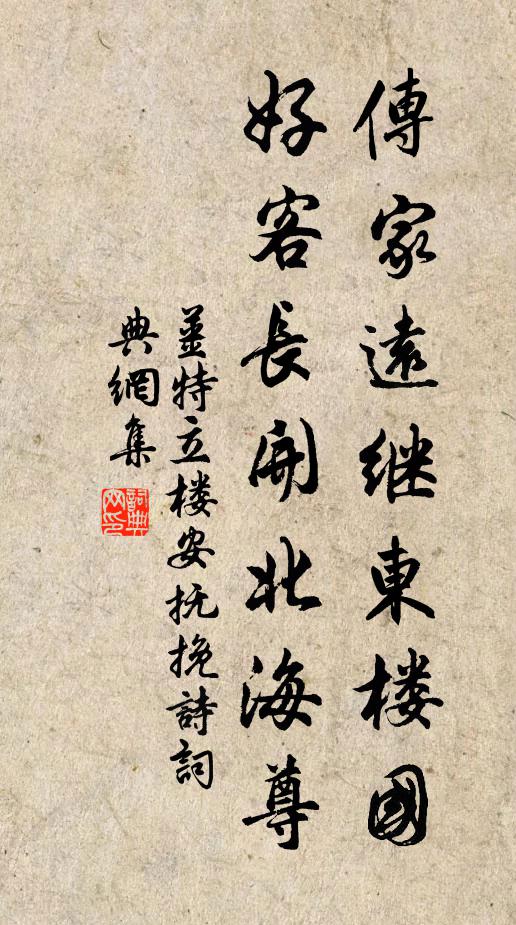 傳家遠继東楼國
好客長開北海尊
姜特立楼安抚挽詩詞
典網集
詞典網印